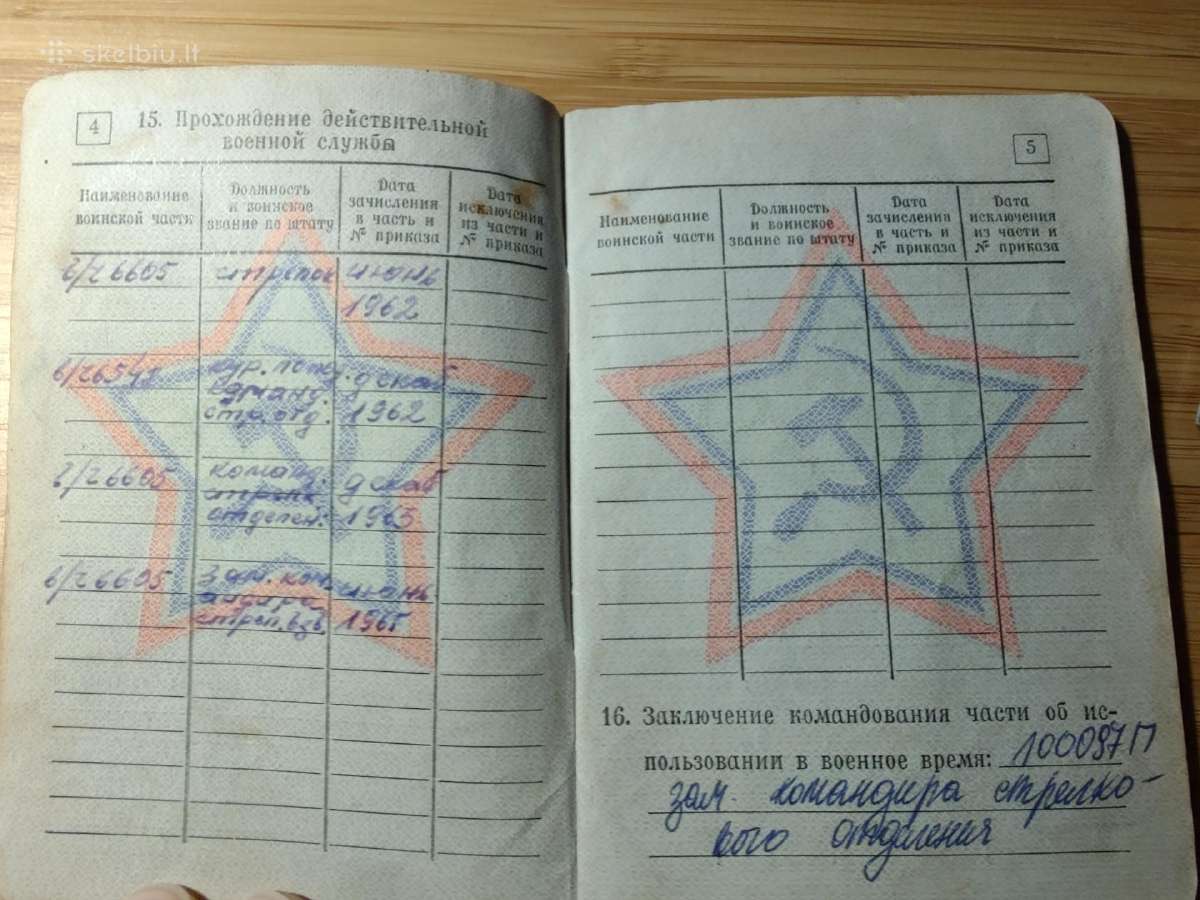 skelbiu.lt
4
15. Прохождение действительной
военной службы
Наименование
воинской части
Должность
и воинское
звание по штату
Дата
зачисления
в часть и
№ приказа
Дата
исключения
из части и
№ приказа
в/ч 6605 стрелок июнь
1962
в/ч
декаб
стр. отд. 1962
в/ч 6605 команд. декаб
отделен. 1963
в/ч 6605 зам. июнь
стрел. взв. 1965
5
Наименование
воинской части
Должность
и воинское
звание по штату
Дата
зачисления
в часть и
№ приказа
Дата
исключения
из части и
№ приказа
16. Заключение командования части об ис-
пользовании в военное время: 100097П
зам. командира стрелко-
вого отделения